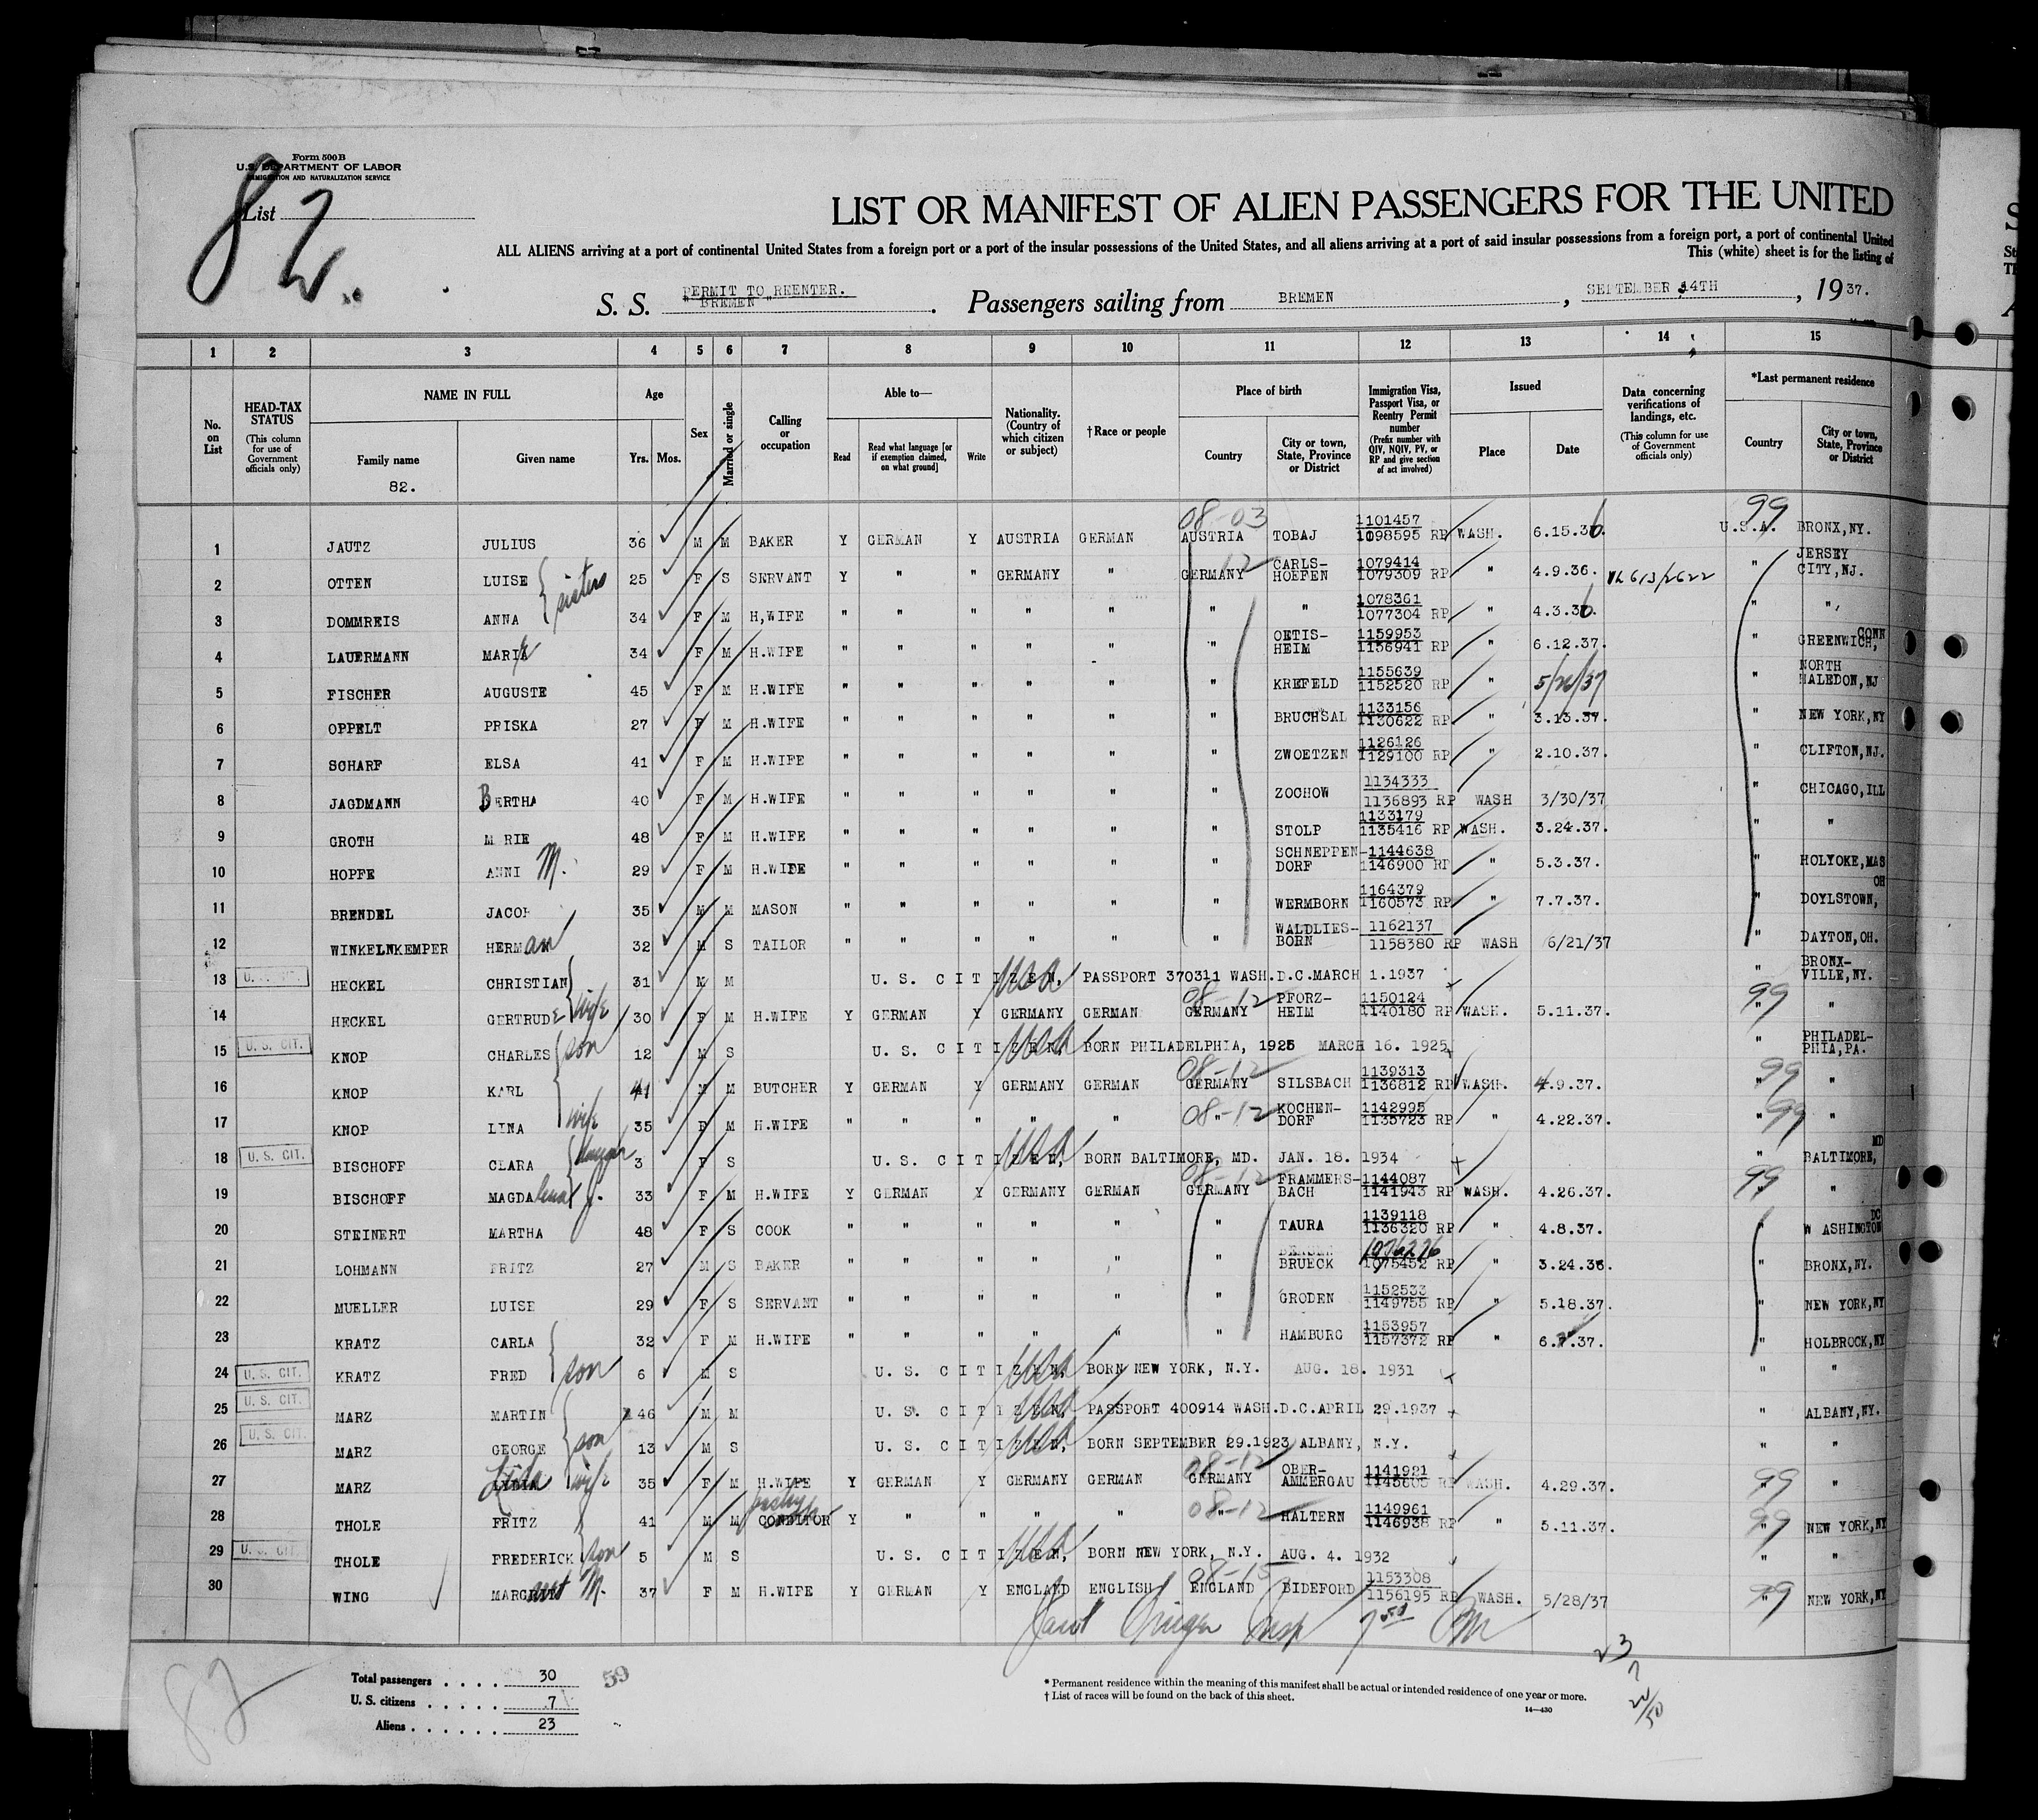 Form 500B
U.S. DEPARTMENT OF LABOR
IMMIGRATION AND NATURALIZATION SERVICE
List
82.
LIST OR MANIFEST OF ALIEN PASSENGERS FOR THE UNITED
ALL ALIENS arriving at a port of continental United States from a foreign port or a port of the insular possessions of the United States, and all aliens arriving at a port of said insular possessions from a foreign port, a port of continental United
This (white) sheet is for the listing of
PERMIT TO REENTER.
S. S. "BREMEN". Passengers sailing from BREMEN, SEPTEMBER 14TH, 1937.
1 2 3 4 5 6 7 8 9 10 11 12 13 14 15
No. on List
HEAD-TAX STATUS (This column for use of Government officials only)
NAME IN FULL Family name Given name
82.
Age Yrs. Mos.
Sex
Married or single
Calling or occupation
Able to— Read Read what language [or if exemption claimed, on what ground] Write
Nationality. (Country of which citizen or subject)
†Race or people
Place of birth Country City or town, State, Province or District
Immigration Visa, Passport Visa, or Reentry Permit number (Prefix number with QIV, NQIV, PV, or RP and give section of act involved)
Issued Place Date
Data concerning verifications of landings, etc. (This column for use of Government officials only)
*Last permanent residence Country City or town, State, Province or District
1 JAUTZ JULIUS 36 M M BAKER Y GERMAN Y AUSTRIA GERMAN 08-03 AUSTRIA TOBAJ 1101457 1098595 RP WASH. 6.15.36. 99 U.S.A. BRONX,NY.
2 OTTEN LUISE sisters 25 F S SERVANT Y " " GERMANY " 12 GERMANY CARLS-HOEFEN 1079414 1079309 RP " 4.9.36. " JERSEY CITY,NJ.
3 DOMMREIS ANNA 34 F M H,WIFE " " " " " " " 1078361 1077304 RP " 4.3.36. " ",
4 LAUERMANN MARIA 34 F M H.WIFE " " " " " " OETIS-HEIM 1159953 1156941 RP " 6.12.37. " GREENWICH, CONN
5 FISCHER AUGUSTE 45 F M H.WIFE " " " " " " KREFELD 1155639 1152520 RP " 5/26/37 " NORTH HALEDON,NJ
6 OPPELT PRISKA 27 F M H.WIFE " " " " " " BRUCHSAL 1133156 1130622 RP " 3.13.37. " NEW YORK,NY
7 SCHARF ELSA 41 F M H.WIFE " " " " " " ZWOETZEN 1126126 1129100 RP " 2.10.37. " CLIFTON,NJ.
8 JAGDMANN BERTHA 40 F M H.WIFE " " " " " " ZOCHOW 1134333 1136893 RP WASH 3/30/37 " CHICAGO,ILL
9 GROTH M RIE 48 F M H.WIFE " " " " " " STOLP 1133179 1135416 RP WASH. 3.24.37. " "
10 HOPFE ANNI M. 29 F M H.WIFE " " " " " " SCHNEPPEN-DORF 1144638 1146900 RP " 5.3.37. " HOLYOKE,MAS
11 BRENDEL JACOB 35 M M MASON " " " " " " WERMBORN 1164379 1160573 RP " 7.7.37. " DOYLSTOWN, OH
12 WINKELNKEMPER HERMAN 32 M S TAILOR " " " " " " WALDLIES-BORN 1162137 1158380 RP WASH 6/21/37 " DAYTON,OH.
13 HECKEL CHRISTIAN 31 M M U. S. CITIZEN, usa PASSPORT 370311 WASH.D.C.MARCH 1.1937 " BRONX-VILLE,NY.
14 HECKEL GERTRUDE wife 30 F M H.WIFE Y GERMAN Y GERMANY GERMAN 08-12 GERMANY PFORZ-HEIM 1150124 1140180 RP WASH. 5.11.37. 99 " "
15 U. S. CIT. KNOP CHARLES son 12 M S U. S. CITIZEN, usa BORN PHILADELPHIA, 1925 MARCH 16. 1925 " PHILADEL-PHIA,PA.
16 KNOP KARL 41 M M BUTCHER Y GERMAN Y GERMANY GERMAN 08-12 GERMANY SILSBACH 1139313 1136812 RP WASH. 4.9.37. 99 " "
17 KNOP LINA wife 35 F M H.WIFE " " " " " 08-12 " KOCHEN-DORF 1142995 1135723 RP " 4.22.37. 99 " "
18 U. S. CIT. BISCHOFF CLARA 3 F S U. S. CITIZEN, usa BORN BALTIMORE, MD. JAN. 18. 1934 " BALTIMORE, MD
19 BISCHOFF MAGDAlena 33 F M H.WIFE Y GERMAN Y GERMANY GERMAN 08-12 GERMANY FRAMMERS-BACH 1144087 1141943 RP WASH. 4.26.37. 99 " "
20 STEINERT MARTHA 48 F S COOK " " " " " " TAURA 1139118 1136320 RP " 4.8.37. " WASHINGTON DC
21 LOHMANN FRITZ 27 M S BAKER " " " " " " BRUECK 1076276 1075452 RP " 3.24.36. " BRONX,NY.
22 MUELLER LUISE 29 F S SERVANT " " " " " " GRODEN 1152533 1149755 RP " 5.18.37. " NEW YORK,NY
23 KRATZ CARLA 32 F M H.WIFE " " " " " " HAMBURG 1153957 1157372 RP " 6.7.37. " HOLBROCK,NY
24 U. S. CIT. KRATZ FRED son 6 M S U. S. CITIZEN, usa BORN NEW YORK, N.Y. AUG. 18. 1931 " "
25 U. S. CIT. MARZ MARTIN 46 M M U. S. CITIZEN, usa PASSPORT 400914 WASH.D.C.APRIL 29.1937 " ALBANY,NY.
26 U. S. CIT. MARZ GEORGE son 13 M S U. S. CITIZEN, usa BORN SEPTEMBER 29.1923 ALBANY, N.Y. " "
27 MARZ wife 35 F M H.WIFE Y GERMAN Y GERMANY GERMAN 08-12 GERMANY OBER-AMMERGAU 1141921 RP WASH. 4.29.37. 99 " "
28 THOLE FRITZ 41 M M CONDITOR Y " " " " 08-12 " HALTERN 1149961 1146938 RP " 5.11.37. 99 " NEW YORK,NY
29 U. S. CIT. THOLE FREDERICK son 5 M S U. S. CITIZEN, usa BORN NEW YORK, N.Y. AUG. 4. 1932 " "
30 WING MARGaret M. 37 F M H.WIFE Y GERMAN Y ENGLAND ENGLISH 08-15 ENGLAND BIDEFORD 1153308 1156195 RP WASH. 5/28/37 99 " NEW YORK,NY
82
Total passengers . . . . 30 59
U. S. citizens . . . . . 7
Aliens . . . . . . 23
23
*Permanent residence within the meaning of this manifest shall be actual or intended residence of one year or more.
†List of races will be found on the back of this sheet.
14—430